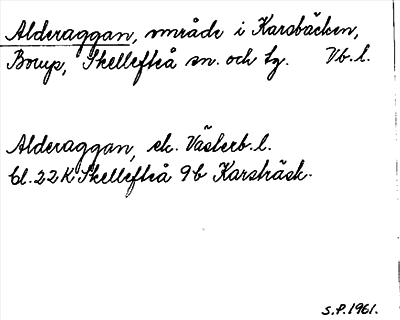 Alderaggan, område i Karsbäcken,
Borup, Skellefteå sn. och tg. Vb. l.
Alderaggan, ek. Västerb. l.
bl. 22 K Skellefteå 9b Karsträsk.
S.P. 1961.